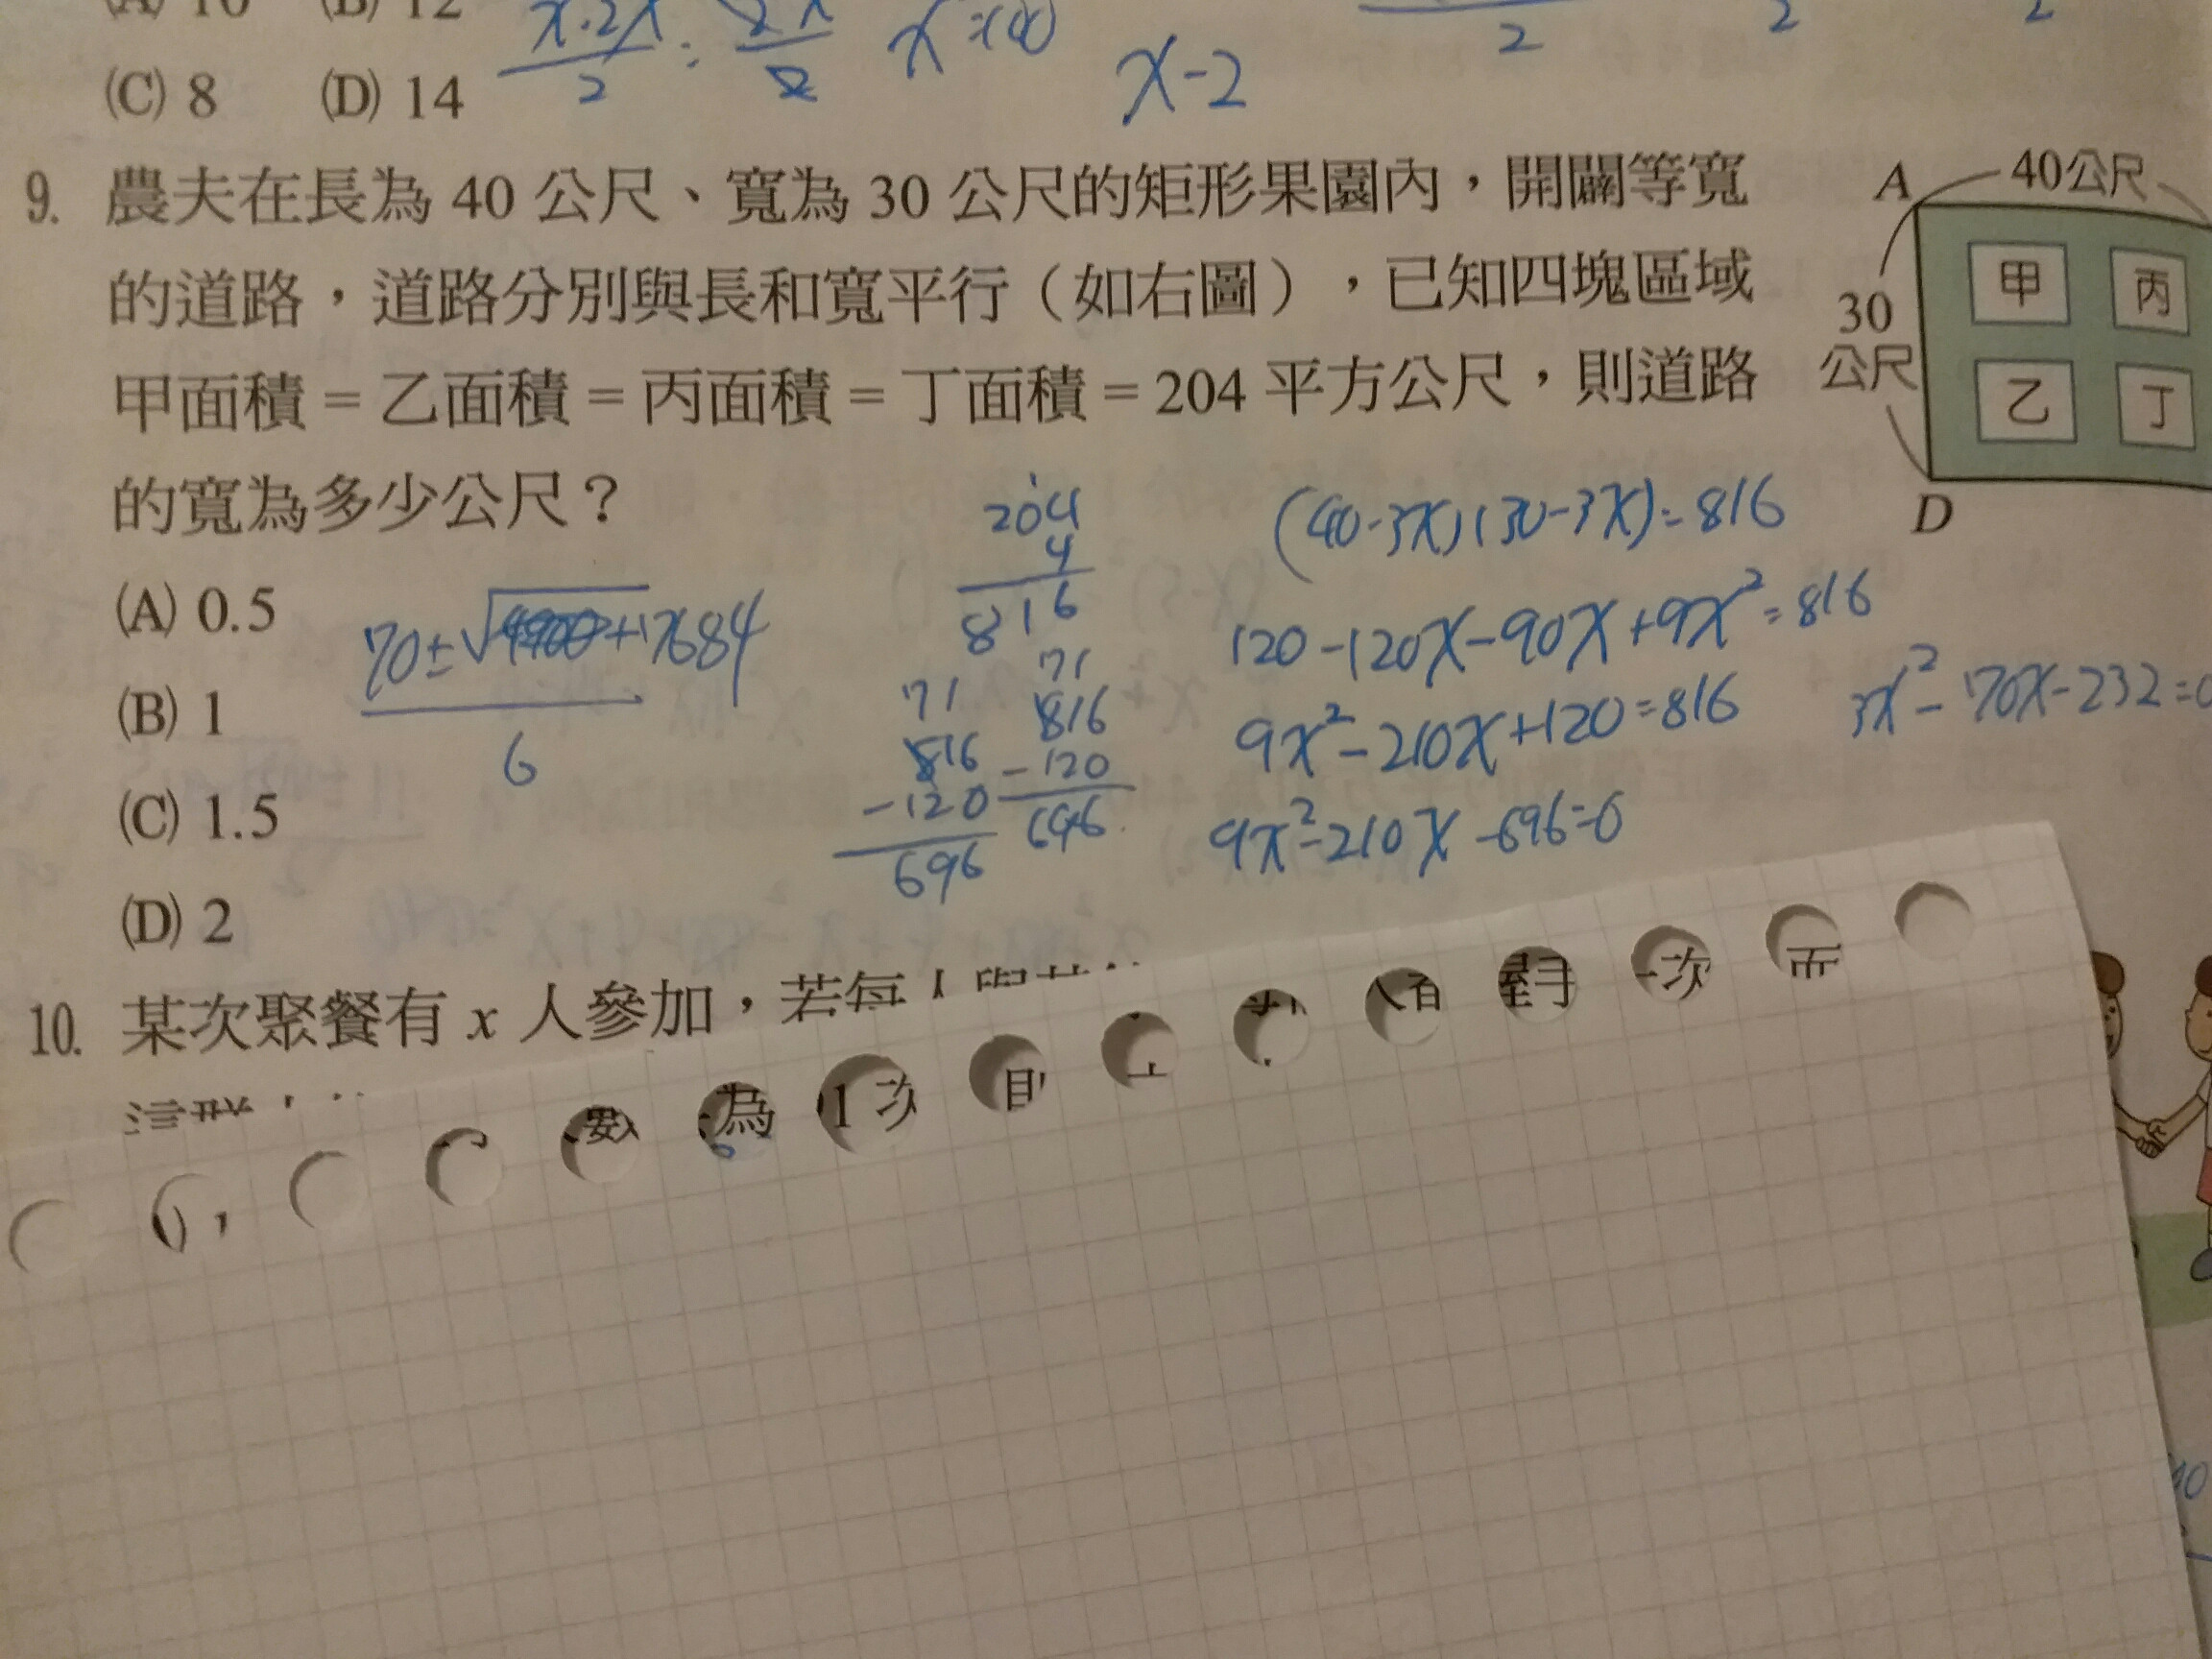 (A) 10 (B) 12
(C) 8 (D) 14
x-2
9. 農夫在長為 40 公尺、寬為 30 公尺的矩形果園內，開闢等寬
的道路，道路分別與長和寬平行（如右圖），已知四塊區域
甲面積 = 乙面積 = 丙面積 = 丁面積 = 204 平方公尺，則道路
的寬為多少公尺？
A 40公尺
甲 丙
30
公尺
乙 丁
D
(A) 0.5
(B) 1
(C) 1.5
(D) 2
204
4
816
71
816
-120
696
71
816
-120
696
(40-3x)(30-3x)=816
120-120x-90x+9x²=816
9x²-210x+120=816
9x²-210x-696=0
3x²-70x-232=0
70±√4900+17684
6
10. 某次聚餐有 x 人參加，若每
數 為 1 次
對 一次 而